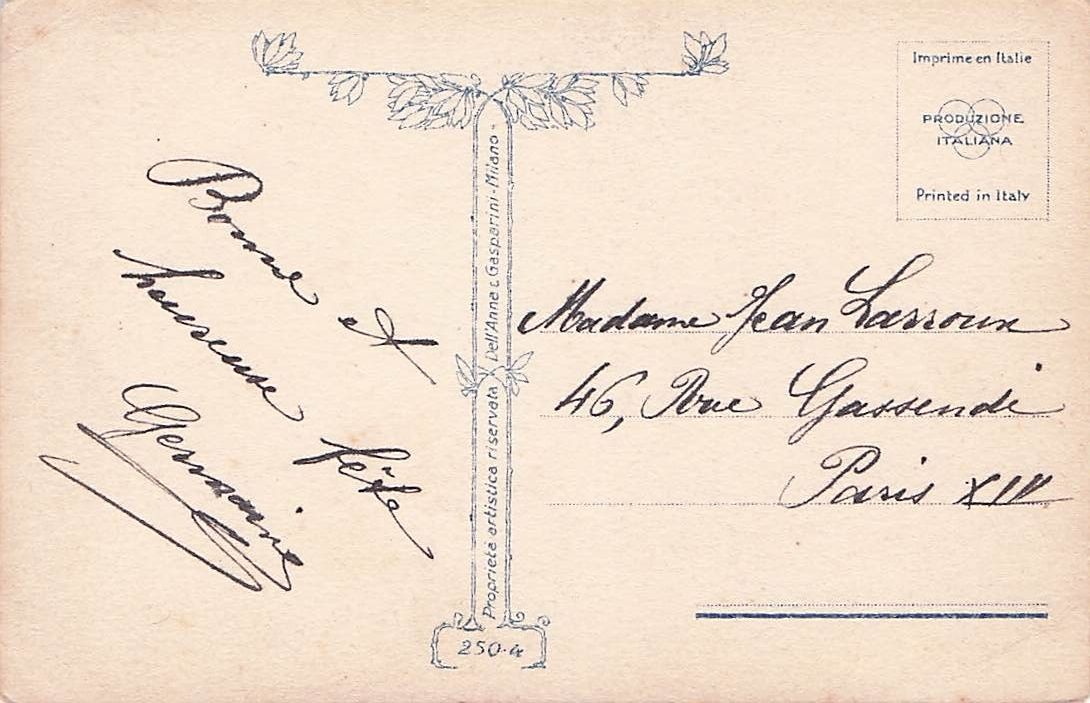 Imprime en Italie
PRODUZIONE
ITALIANA
Printed in Italy
Bonne et
heureuse fête
Germaine
Proprietà artistica riservata Dell'Anna & Gasparini - Milano -
250-4
Madame Jean Larroux
46, Rue Gassendi
Paris XIV